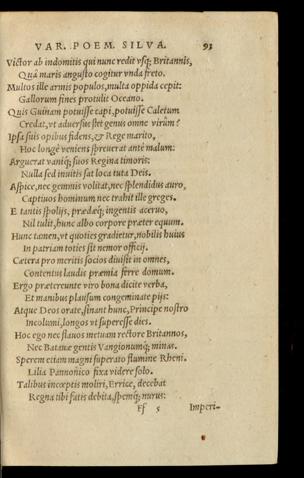 VAR. POEM. SILVA. 93
Victor ab indomitis qui nunc redit vsq; Britannis,
Quâ maris angusto cogitur vnda freto.
Multos ille armis populos, multa oppida cepit:
Gallorum fines protulit Oceano.
Quis Guinam potuisse capi, potuisse Caletum
Credat, vt aduersus stet genus omne virûm?
Ipsa suis opibus fidens, & Rege marito,
Hoc longè veniens spreuerat antè malum:
Arguerat vaniq; suos Regina timoris:
Nulla sed inuitis sat loca tuta Deis.
Aspice, nec gemnis volitat, nec splendidus auro,
Captiuos hominum nec trahit ille greges.
E tantis spolijs, prædæq; ingentis aceruo,
Nil tulit, hunc albo corpore præter equum.
Hunc tamen, vt quoties gradietur, nobilis huius
In patriam toties sit nemor officij.
Cætera pro meritis socios diuisit in omnes,
Contentus laudis præmia ferre domum.
Ergo prætereunte viro bona dicite verba,
Et manibus plausum congeminate pijs:
Atque Deos orate, sinant hunc, Principe nostro
Incolumi, longos vt superesse dies.
Hoc ego nec flauos metuam rectore Britannos,
Nec Batauæ gentis Vangionumq; minas.
Sperem etiam magni superato flumine Rheni.
Lilia Pannonico fixa videre solo.
Talibus inceptis moliri, Errice, decebat
Regna tibi fatis debita, spemq; nurus:
Ff 5 Imperi-